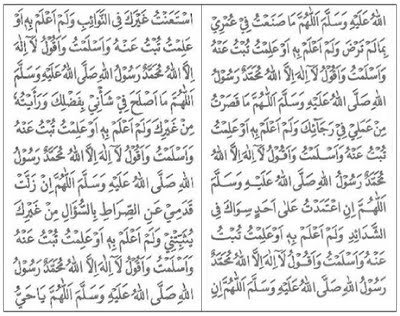 اللهُ عَلَيْهِ وَسَلَّمَ اَللّٰهُمَّ مَا صَنَعْتُ فِيْ عُمْرِيْ
بِمَالَمْ تَرْضَ وَلَمْ اَعْلَمْ بِهِ اَوْعَلِمْتُ تُبْتُ عَنْهُ
وَاَسْلَمْتُ وَاَقُوْلُ لَآاِلٰهَ اِلَّا اللهُ مُحَمَّدٌ رَسُوْلُ اللهِ
صَلَّى اللهُ عَلَيْهِ وَسَلَّمَ اَللّٰهُمَّ مَا قَصَرْتُ
مِنْ عَمَلِيْ فِيْ رَجَآئِكَ وَلَمْ اَعْلَمْ بِهِ اَوْعَلِمْتُ تُبْتُ
عَنْهُ وَاَسْلَمْتُ وَاَقُوْلُ لَآاِلٰهَ اِلَّا اللهُ
مُحَمَّدٌ رَسُوْلُ اللهِ صَلَّى اللهُ عَلَيْهِ وَسَلَّمَ
اَللّٰهُمَّ اِنِ اعْتَمَدْتُ عَلٰى اَحَدٍ سِوَاكَ فِى
الشَّدَآئِدِ وَلَمْ اَعْلَمْ بِهِ اَوْعَلِمْتُ تُبْتُ
عَنْهُ وَاَسْلَمْتُ وَاَقُوْلُ لَآاِلٰهَ اِلَّا اللهُ مُحَمَّدٌ
رَسُوْلُ اللهِ صَلَّى اللهُ عَلَيْهِ وَسَلَّمَ اَللّٰهُمَّ اِنِ
اسْتَعَنْتُ غَيْرَكَ فِى النَّوَآئِبِ وَلَمْ اَعْلَمْ بِهِ اَوْ
عَلِمْتُ تُبْتُ عَنْهُ وَاَسْلَمْتُ وَاَقُوْلُ لَآاِلٰهَ
اِلَّا اللهُ مُحَمَّدٌ رَسُوْلُ اللهِ صَلَّى اللهُ عَلَيْهِ وَسَلَّمَ
اَللّٰهُمَّ مَا اَصْلَحَ فِيْ شَأْنِيْ بِفَضْلِكَ وَرَأَيْتُهُ
مِنْ غَيْرِكَ وَلَمْ اَعْلَمْ بِهِ اَوْعَلِمْتُ تُبْتُ عَنْهُ
وَاَسْلَمْتُ وَاَقُوْلُ لَآاِلٰهَ اِلَّا اللهُ مُحَمَّدٌ رَسُوْلُ
اللهِ صَلَّى اللهُ عَلَيْهِ وَسَلَّمَ اَللّٰهُمَّ اِنْ زَلَّتْ
قَدَمِيْ عَنِ الصِّرَاطِ بِالسُّؤَالِ مِنْ غَيْرِكَ
يُثَبِّتُنِيْ وَلَمْ اَعْلَمْ بِهِ اَوْعَلِمْتُ تُبْتُ عَنْهُ
وَاَسْلَمْتُ وَاَقُوْلُ لَآاِلٰهَ اِلَّا اللهُ مُحَمَّدٌ رَسُوْلُ
اللهِ صَلَّى اللهُ عَلَيْهِ وَسَلَّمَ اَللّٰهُمَّ يَاحَيُّ